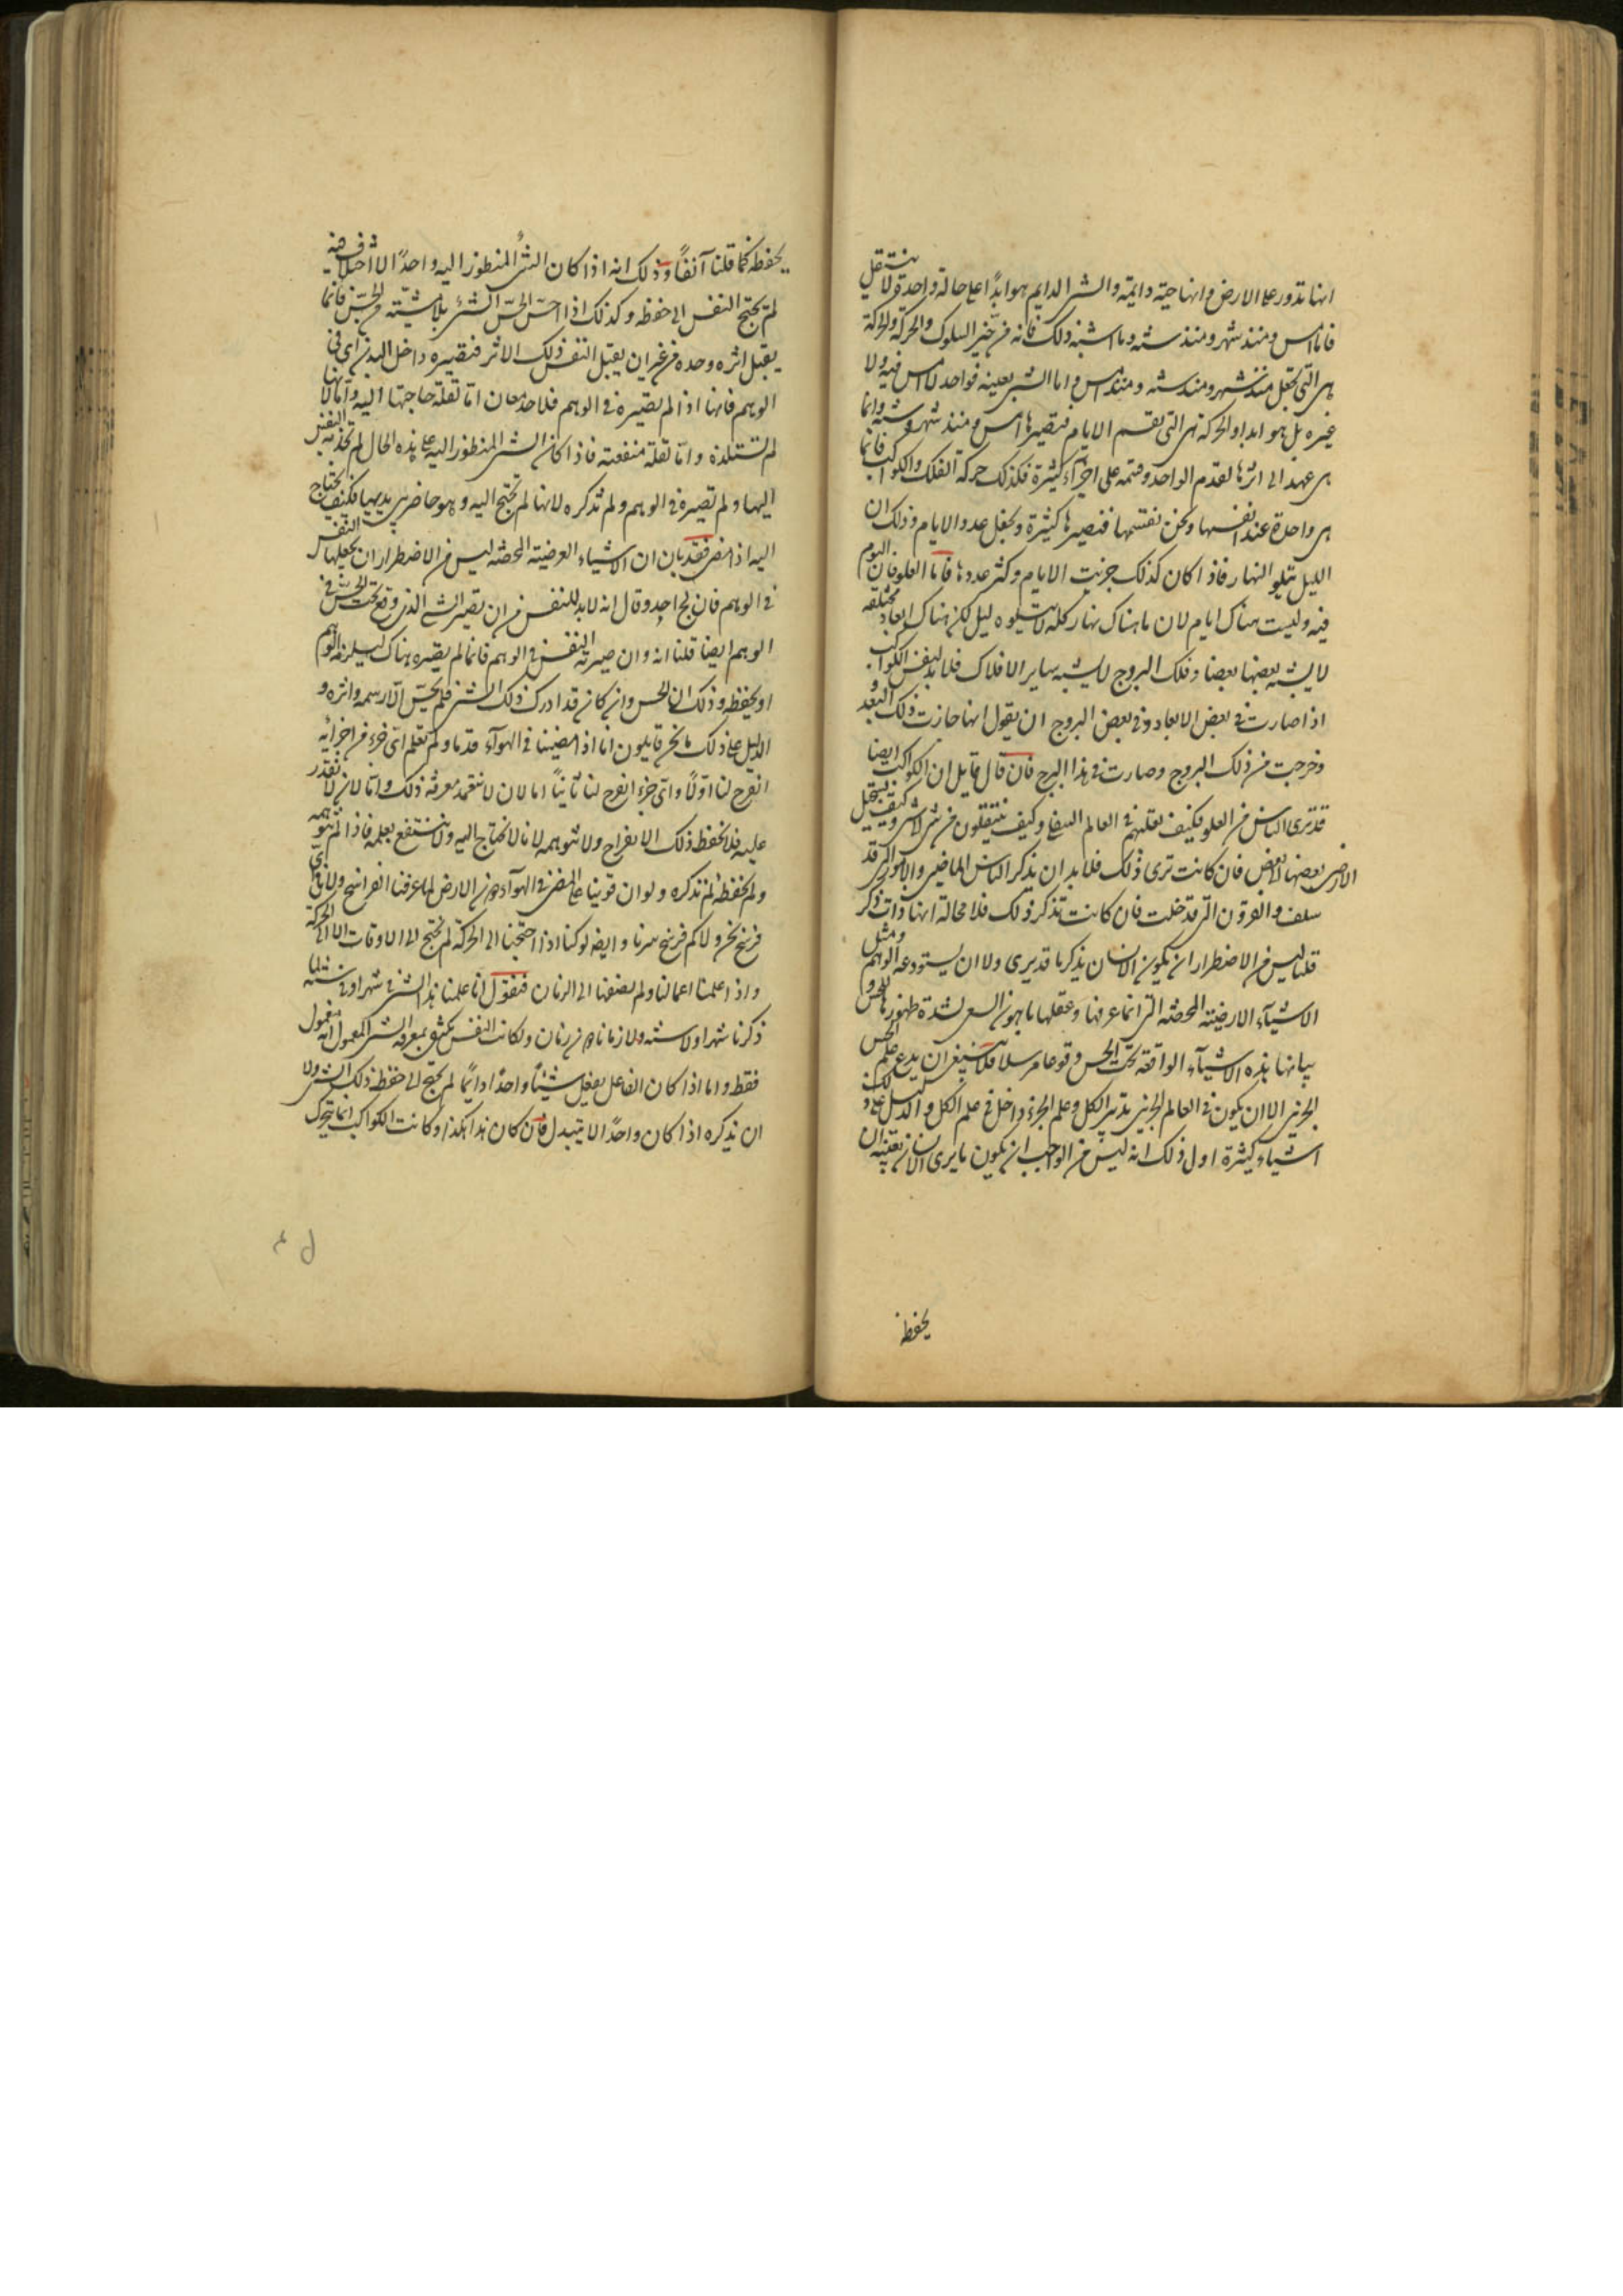 انها تدور على الارض وانها حية دايمة والشى الدايم هو ابدًا على حالة واحدة ولا ينتقل
فاما امس ومنذ شهر ومنذ سنة وما اشبه ذلك فانه من حيز السلوك والحركة والحركة
هى التى تجعل منذ شهر ومنذ سنة ومنذ امس واما الشى بعينه فواحد لا امس فيه ولا
غيره بل هو ابدا والحركة هى التى تقسم الايام فتصيرها امس ومنذ شهر وسنة وانما
هى عهد الى اثرها لقدم الواحد وقسمه على اجزآء كثيرة فكذلك حركة الفلك والكواكب فانما
هى واحدة عند انفسها ونحن نقسمها فنصيرها كثيرة ونجعل عدد الايام وذلك ان
الليل يتلو النهار فاذا كان كذلك جزيت الايام وكثر عددها فاما العلو فان اليوم
فيه وليست هناك ايام لان ما هناك نهار كله لا يتلوه ليل لكن هناك ابعاد مختلفة
لا يشبه بعضها بعضا وفلك البروج لا يشبه ساير الافلاك فلا بد لنفس الكواكب
اذا صارت فى بعض الابعاد وفى بعض البروج ان يقول انها جازت ذلك البعد و
وخرجت من ذلك البروج وصارت فى هذا البرج فان قال قايل ان الكواكب ايضا
قد ترى الناس من العلو فكيف تقلبهم فى العالم السفلى وكيف ينتقلون من شى الى شى وكيف يستحيل
الارضى بعضها لبعض فان كانت ترى ذلك فلا بد ان يذكر الناس الماضين والامور التى قد
سلف والقرون التى قد خلت فان كانت تذكر ذلك فلا محالة انها ذات ذكر
قلنا ليس من الاضطرار ان يكون الانسان يذكر ما قد يرى ولا ان يستودعه الوهم ومثل
الاشيآء الارضية المحضة التى انما عرفها وعقلها باهون السعى لشدة ظهورها للحس و
بيانها بهذه الاشيآء الواقعة تحت الحس وقوعا مرسلا فلا ينبغى ان يدع علم الحس
الجزئى الا ان يكون فى العالم الجزئى يدبر الكل وعلم الجزء داخل فى علم الكل والدليل على ذلك
اشياء كثيرة اول ذلك انه ليس من الواجب ان يكون ما يرى الانسان بعينه ان
يحفظ
يحفظه كما قلنا آنفًا وذلك انه اذا كان الشئ المنظور اليه واحدًا لا اختلاف فيه
لم يحتج النفس الى حفظه وكذلك اذا احسّ الحس الشئ بلا مشيّته من الحسّ فانما
يقبل اثره وحده من غير ان يقبل النفس ذلك الاثر فتصيره داخل البدن اى فى
الوهم فانها اذا لم تصيره فى الوهم فلاحد معان اما لقلة حاجتها اليه واما لانها
لم تستلذه واما لقلة منفعته فاذا كان الشى المنظور اليه على هذه الحال لم تجذبه النفس
اليها ولم تصيره فى الوهم ولم تذكره لانها لم تحتج اليه وهو حاضر بين يديها فكيف تحتاج
اليه اذا مضى فقد بان ان الاشياء العرضية المحضة ليس من الاضطرار ان يجعلها النفس
فى الوهم فان لج احد وقال انه لا بد للنفس من ان تصير الشئ الذى وقع تحت الحس فى
الوهم ايضا قلنا انه وان صيرته النفس فى الوهم فانما لم يصيره هناك ليلزمه الوهم
او يحفظه وذلك ان الحس وان كان قد ادرك ذلك الشى فلم يحسّ الا رسمه واثره و
الدليل على ذلك ما نحن قايلون انا اذا مضينا فى الهوآء قدما ولم نعلم اىّ جزء من اجزائه
انفرج لنا اوّلًا واىّ جزء انفرج لنا ثانيًا اما لان لا نتعمد معرفة ذلك واما لان لا نقدر
عليه فلا نحفظ ذلك الانفراج ولا نتوهمه لانا لا نحتاج اليه ولا ننتفع بعلمه فاذا لم نتوهمه
ولم نحفظه لم نذكره ولو ان قوينا على المضى فى الهوآء دون الارض لما عرفنا الفراسخ ولا فى اى
فرسخ نحن ولا كم فرسخ سرنا وايضا لو كنا اذا احتجنا الى الحركة لم نحتج الى الاوقات الا الى الحركة
واذا علمنا اعمالنا ولم يضفها الى الزمان فنقول انا علمنا هذا الشى فى شهر او فى سنة لما
ذكرنا شهرا ولا سنة ولا زمانا دون زمان ولكانت النفس تكتفى بمعرفة الشى المعمول انه معمول
فقط واما اذا كان الفاعل يفعل شيئًا واحدًا دايمًا لم يحتج الى حفظ ذلك الشى ولا
ان يذكره اذا كان واحدًا لا يتبدل فان كان هذا هكذا وكانت الكواكب انما تتحرك